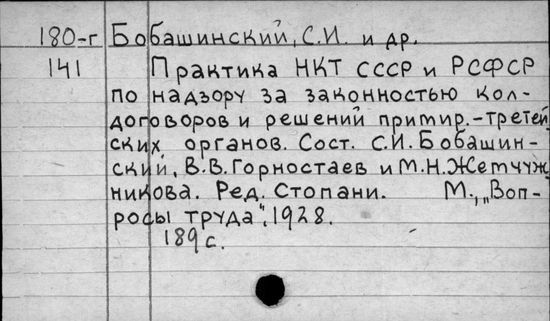 180-г Бобашинский, С.И. и др.
141 Практика НКТ СССР и РСФСР
по надзору за законностью кол-
договоров и решений примир.-третей
ских органов. Сост. С.И. Бобашин-
ский, В.В. Горностаев и М.Н. Жемчуж
никова. Ред. Стопани. М., „Воп-
росы труда“, 1928.
189 с.